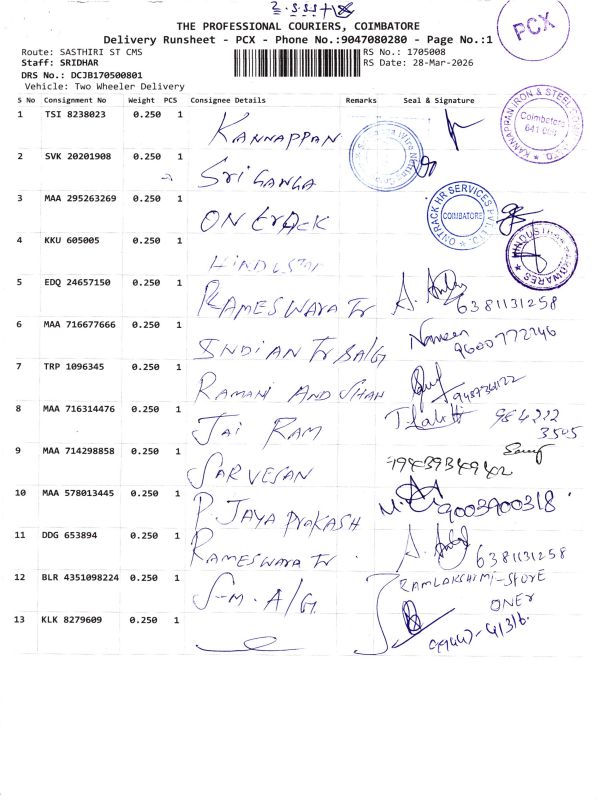 PCX
THE PROFESSIONAL COURIERS, COIMBATORE
Delivery Runsheet - PCX - Phone No.:9047080280 - Page No.:1
Route: SASTHIRI ST CMS RS No.: 1705008
Staff: SRIDHAR RS Date: 28-Mar-2026
DRS No.: DCJB170500801
Vehicle: Two Wheeler Delivery
S No Consignment No Weight PCS Consignee Details Remarks Seal & Signature
1 TSI 8238023 0.250 1 KANNAPPAN
KANNAPPAN IRON & STEEL CO
Coimbatore
2 SVK 20201908 0.250 1 Sri GANGA
3 MAA 295263269 0.250 1 ON trAcK
ONTRACK HR SERVICES PVT. LTD.
COIMBATORE
4 KKU 605005 0.250 1 HINDUSTAN
5 EDQ 24657150 0.250 1 RAMESWARA Tr 6381131258
6 MAA 716677666 0.250 1 INDIAN Tr SA/G Naveen 9600772246
7 TRP 1096345 0.250 1 RAMANI AND SHAH
8 MAA 716314476 0.250 1 JAI RAM
9 MAA 714298858 0.250 1 SARVESAN
10 MAA 578013445 0.250 1 P. JAYA PrOKASH 9003900318
11 DDG 653894 0.250 1 RAMESWARA Tr 6381131258
12 BLR 4351098224 0.250 1 S-M. A/G RAMLAKSHMI-STORE
ONER
13 KLK 8279609 0.250 1